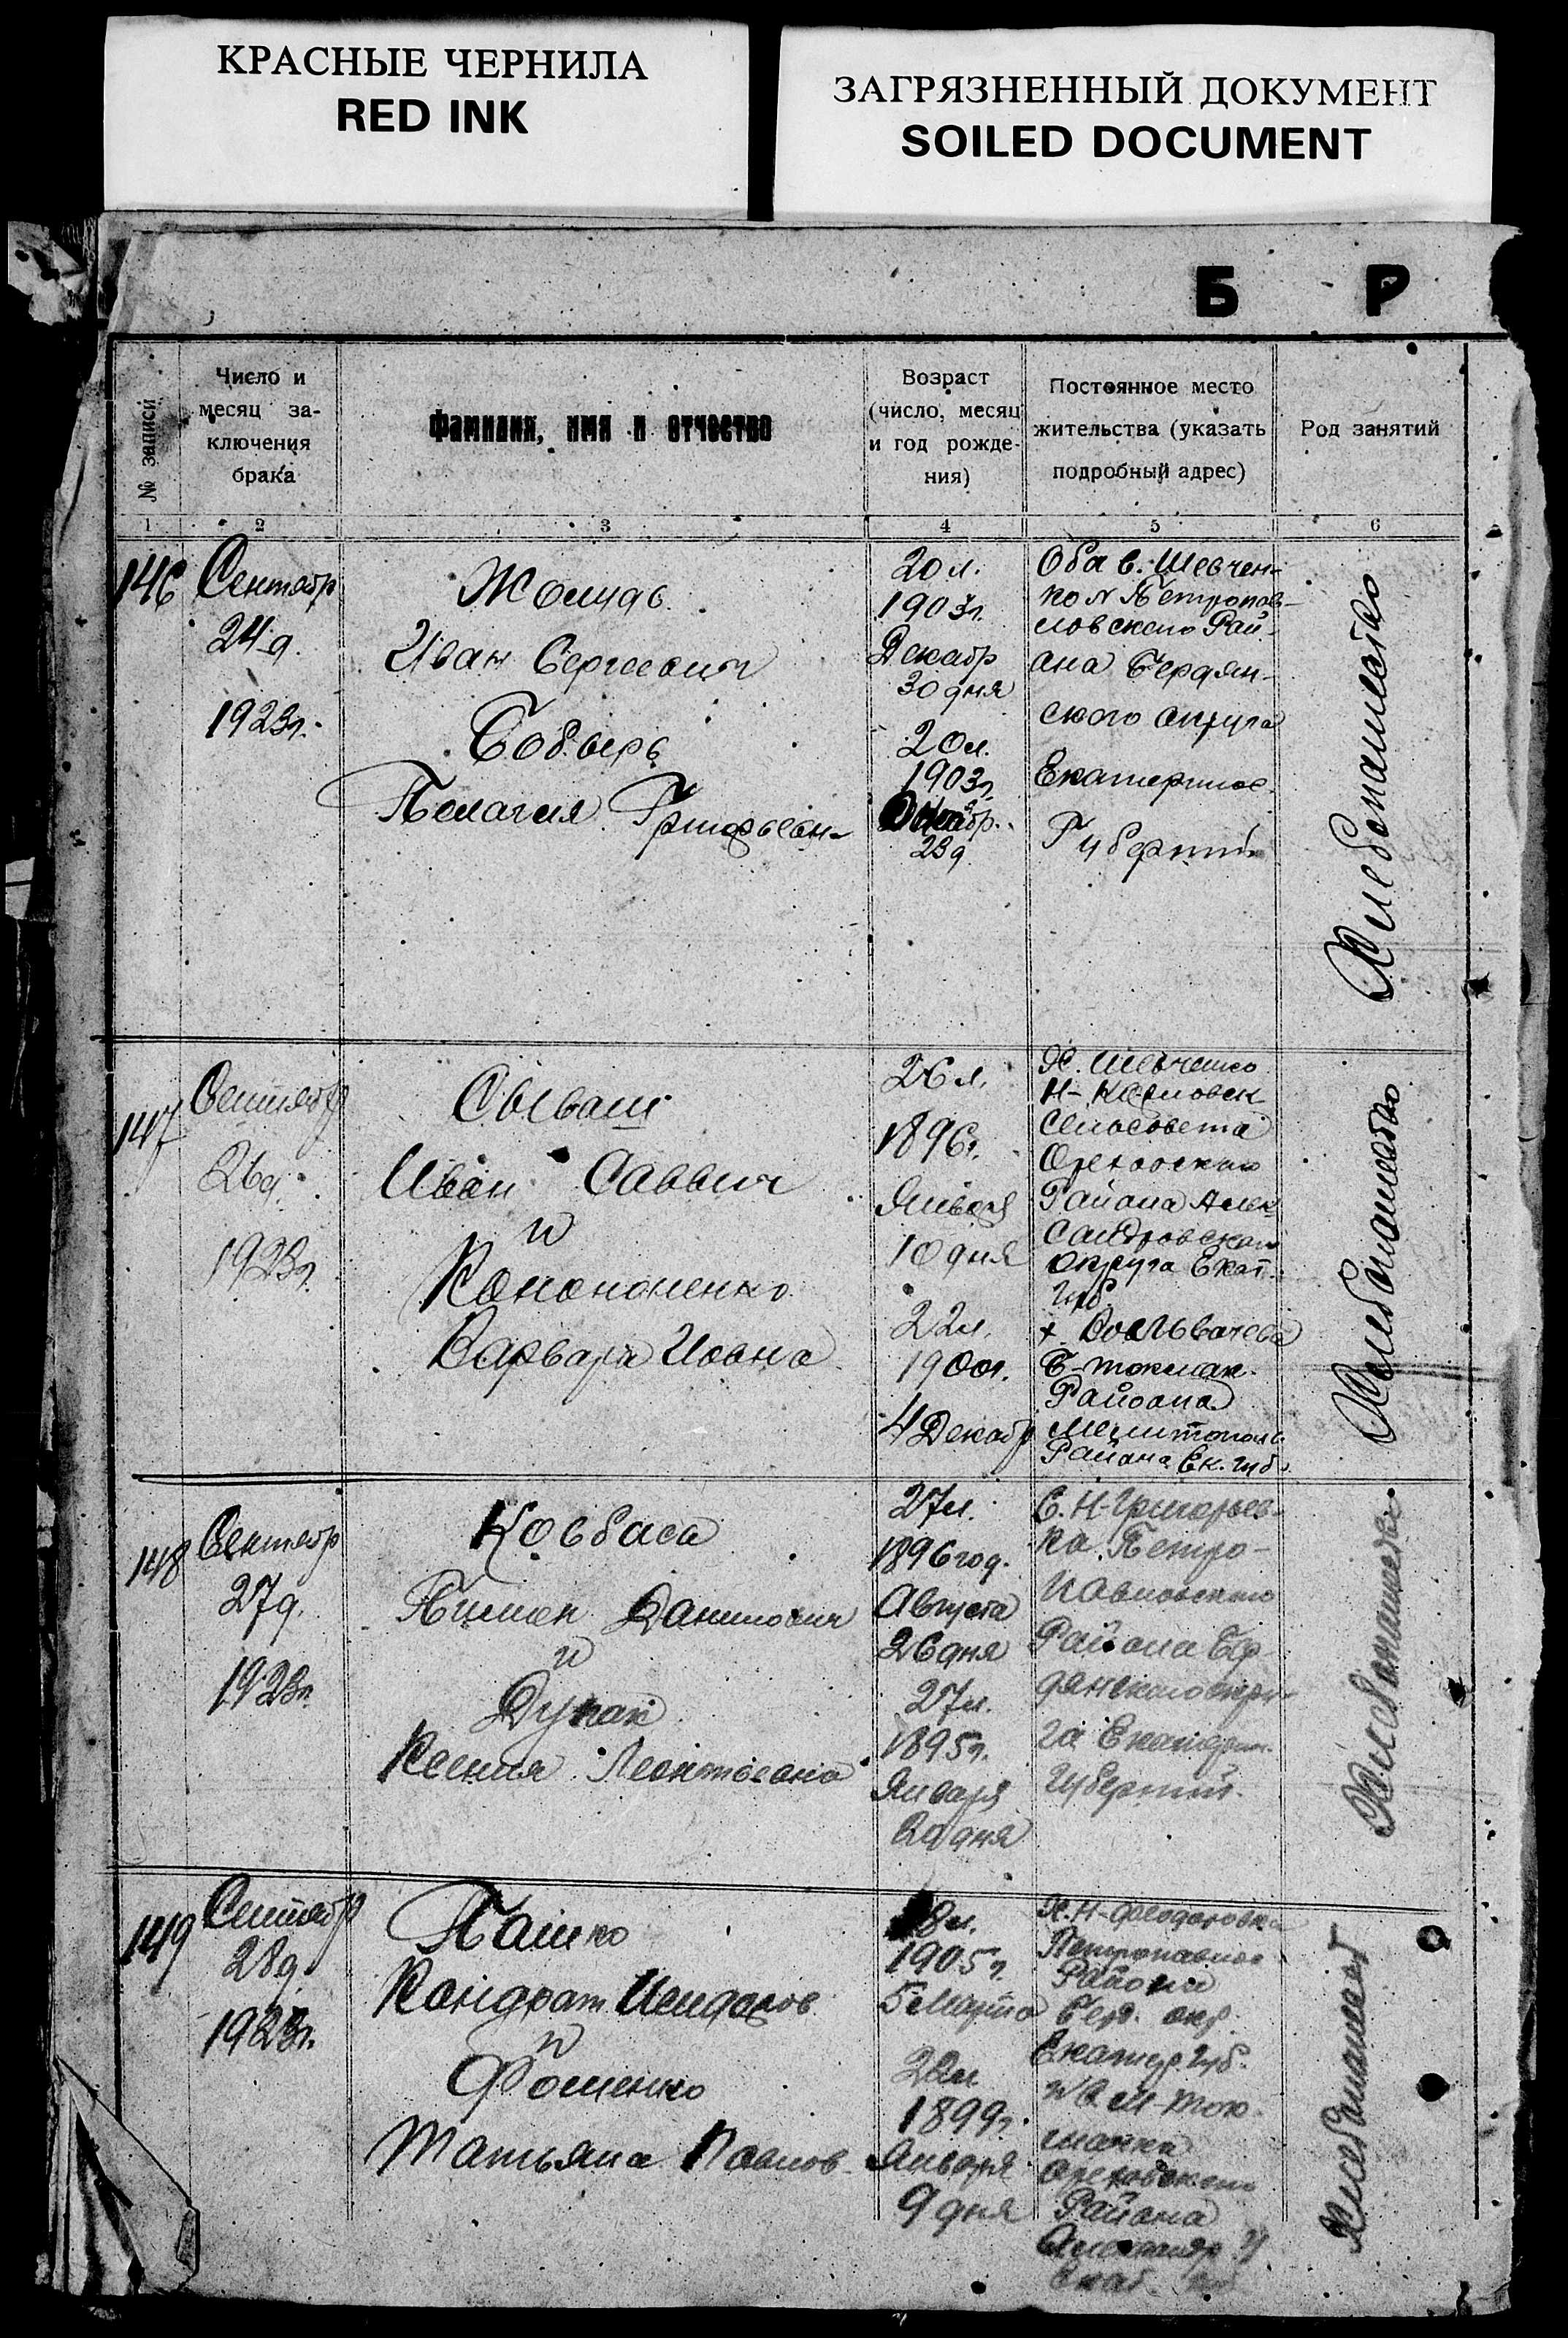 КРАСНЫЕ ЧЕРНИЛА
RED INK
ЗАГРЯЗНЕННЫЙ ДОКУМЕНТ
SOILED DOCUMENT
Б Р
№ записи
Число и
месяц за-
ключения
брака
Фамилия, имя и отчество
Возраст
(число, месяц
и год рожде-
ния)
Постоянное место
жительства (указать
подробный адрес)
Род занятий
1 2 3 4 5 6
146
Сентябр
24 д.
1923 г.
Иван Сергеевич
Бобырь
Пелагия Григорьевн
20 л.
1903 г.
Декабр
30 дня
20 л.
1903 г.
23 д.
Оба с. Шевчен-
ко Петропав-
ловского Рай-
она Бердян-
ского округа
Екатеринос.
Губернии
Хлебопашество
147
Сентябр
26 д.
1923 г.
Сываш
Иван Саввич
и
Конононенко
Варвара Иовна
26 л.
1896 г.
Января
10 дня
22 л.
1900 г.
4 Декабр
Х. Шевченко
Сельсовета
Ореховского
Района Алек
сандровского
округа Екат.
губ.
Б-токмак.
Района
Мелитопольс
Района Ек. губ.
Хлебопашество
148
Сентябр
27 д.
1923 г.
Ковбаса
Пимен Данилович
и
Дупак
Ксения Леонтьевна
27 л.
1896 год.
Августа
26 дня
27 л.
1895 г.
Января
20 дня
С. Н-Григорьев-
ка Петро-
павловского
Района Бер-
дянского окру-
га Екатерин.
Губернии.
Хлебопашество
149
Сентябр
28 д.
1923 г.
Пашко
Кондрат Исидоров
и
Фоменко
Татьяна Павлов
18 л.
1905 г.
5 Марта
22 л
1899 г.
Января
9 дня
Х. Н-Феодоровка
Петропавлов
Района
Берд. окр.
Екатер губ.
и С. М-Ток-
мачка
Ореховского
Района
Хлебопашест